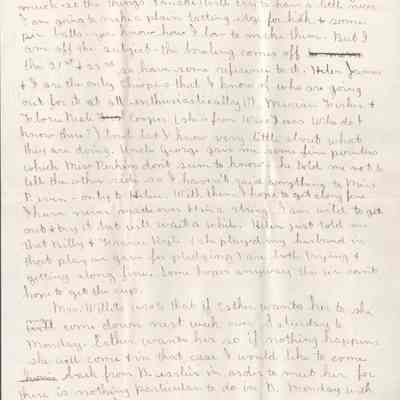 much at the things Tauske(?) will try to have a little nicer
I am going to make a plain tatting edge for hdkh & some
pin balls - you know how I lov to make them. But I
am off the subject - the bowling comes off
the 21st & 22nd so have some reference to it. Helen James
& I are the only Chiopes that I know of who are going
out for it at all enthusiastically. Miriam &
Cooper (she's from Wis. I was Who do I
know thru?) and but I know very little about what
they are doing. Uncle George gave me some fine pointers
which Miss Perkins don't seem to know - he told me not to
tell the other side so I haven't said anything to Miss
P. even - only to Helen. With them I hope to get along fine.
I have never made over a string. I am wild to get
out & try it but will wait a while. Helen just told me
that Billy & Florence (she played my husband in
that play we gave for pledging) are both trying &
getting along fine. Some hopes anyway she sees can't
hope to get the cup.
Mrs. Willits wrote that if Esther wants her to she
will come down next week over Saturday to
Monday. Esther wants her so if nothing happens
she will come & in that case I would like to come
back from B. earlier in order to meet her for
there is nothing particular to do in B. Monday with